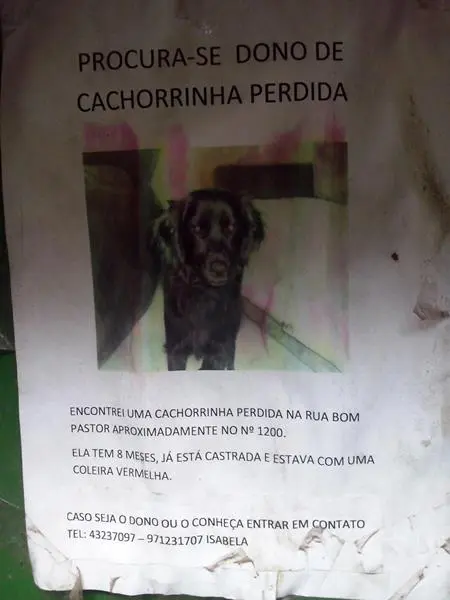 PROCURA-SE DONO DE
CACHORRINHA PERDIDA
ENCONTREI UMA CACHORRINHA PERDIDA NA RUA BOM
PASTOR APROXIMADAMENTE NO Nº 1200.
ELA TEM 8 MESES, JÁ ESTÁ CASTRADA E ESTAVA COM UMA
COLEIRA VERMELHA.
CASO SEJA O DONO OU O CONHEÇA ENTRAR EM CONTATO
TEL: 43237097 – 971231707 ISABELA